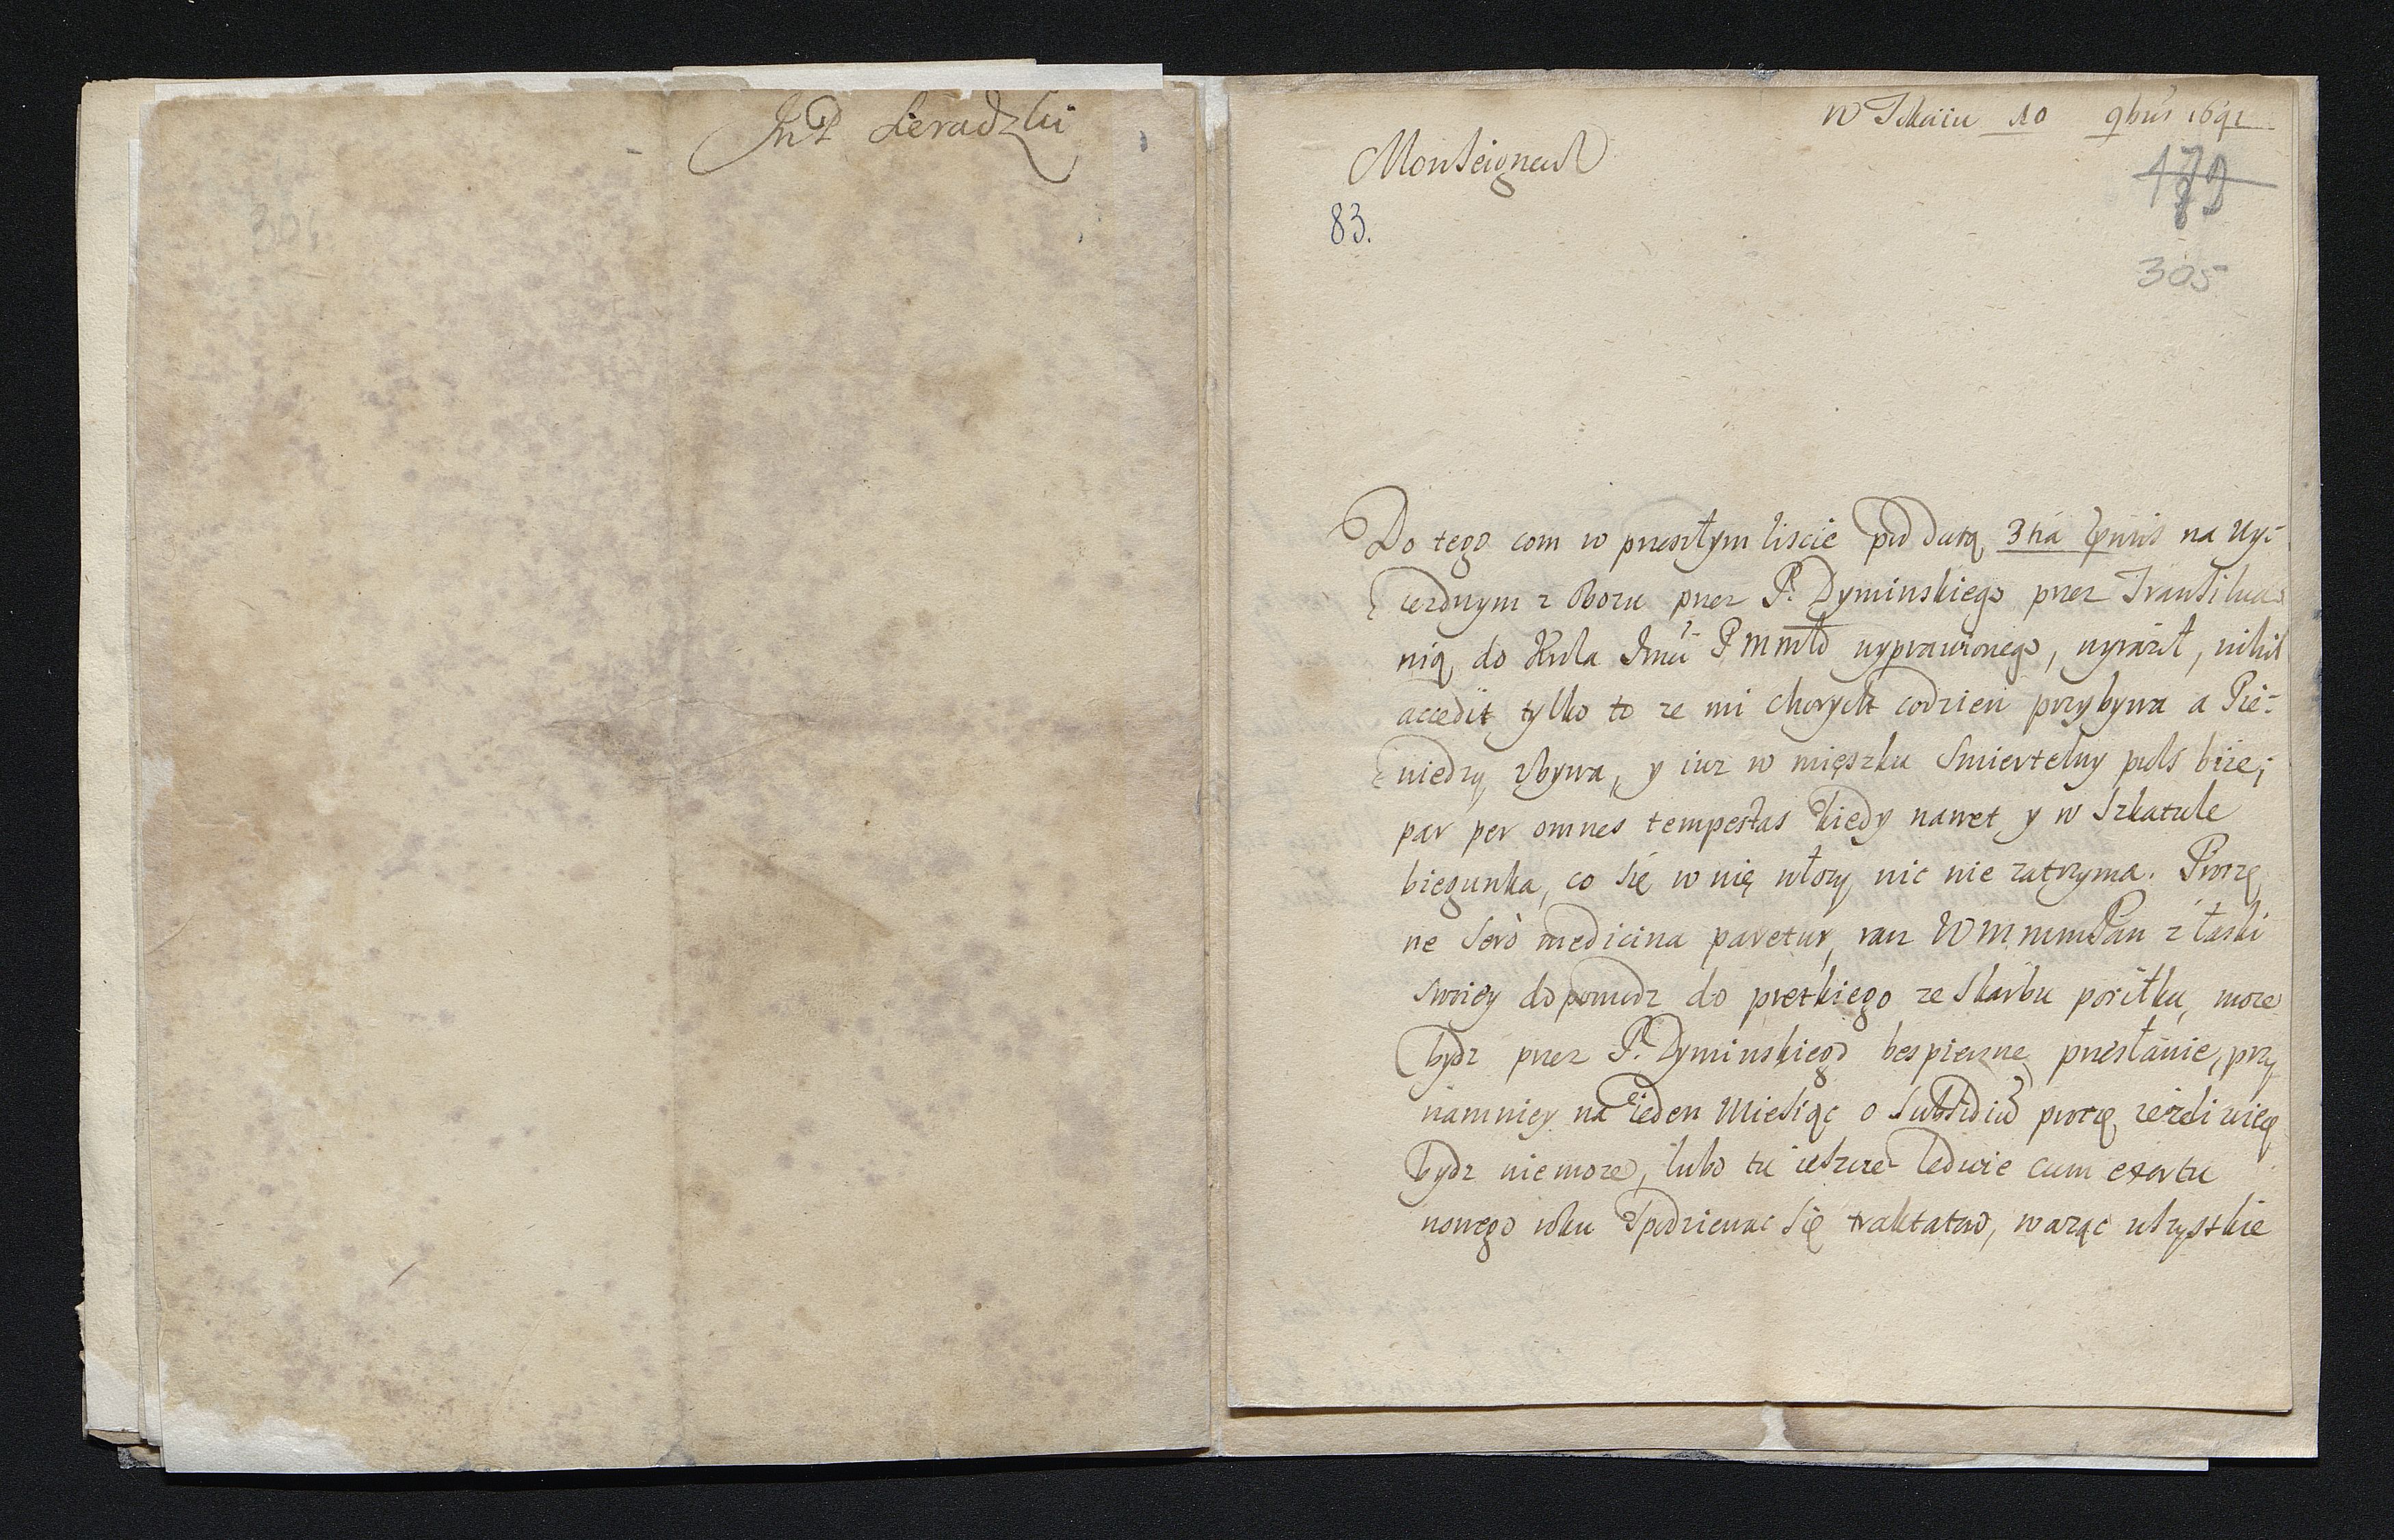 JmP Sieradzki
w Ikaiu 10 9bris 1691
Monseigneur
179
83.
305
Do tego com w przeszłym liscie pod datą 3tia 9bris na wy-
iezdnym z Obozu przez P. Dyminskiego przez Transilwa
nią do Krola Jmci P M mło wyprawionego, wyraził, nihil
accedit tylko to ze mi chorych codzien przybywa a Pie-
niedzy zbywa, y iuz w mięszku smiertelny puls biie;
par per omnes tempestas kiedy nawet y w Szkatule
biegunka, co się w nię włozy, nic nie zatrzyma. Proszę
ne sero medicina paretur, racz WMmmPan z łaski
swoiey dopomodz do prętkiego ze Skarbu posiłku, moze
bydz przez P. Dyminskiego bespieczne przesłanie, przy
namniey na ieden Miesiąc o Subsidiū proszę iezeli więcy
bydz niemoze, lubo tu ieszcze ledwie cum exortu
nowego roku spodziewac się traktatow, waząc wszystkie